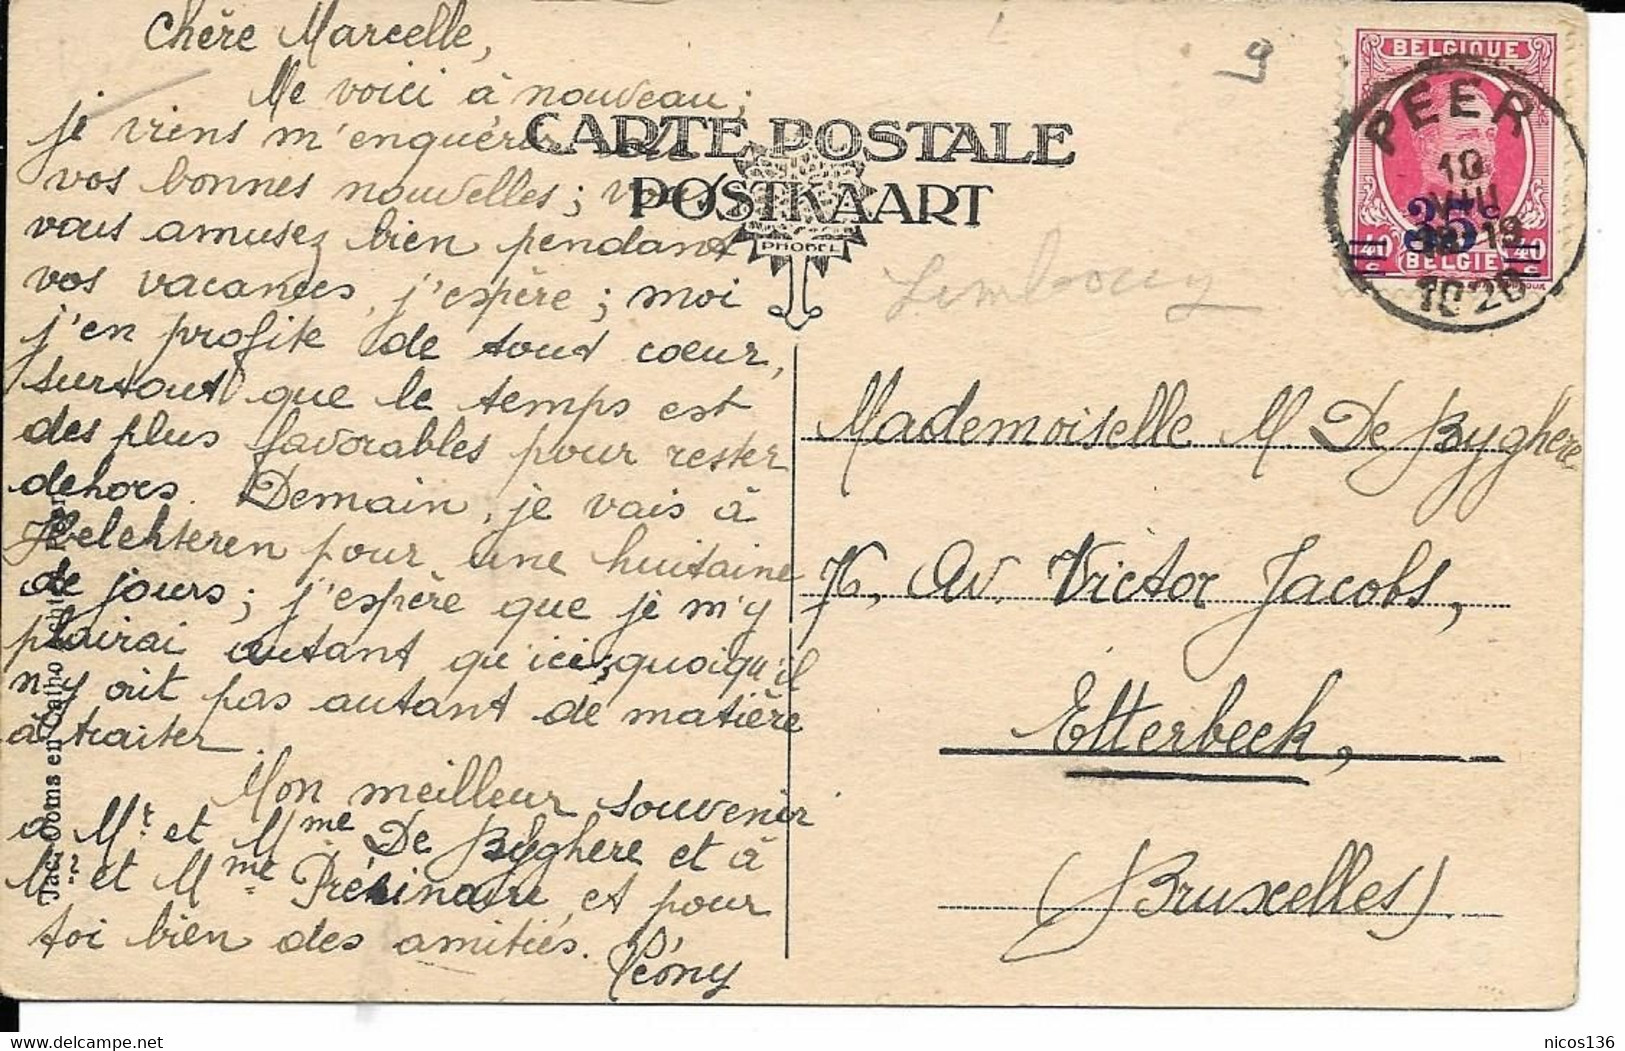 Chère Marcelle,
Me voici à nouveau;
je viens m'enquérir de
vos bonnes nouvelles; vous
vous amusez bien pendant
vos vacances, j'espère; moi
j'en profite de tout coeur,
surtout que le temps est
des plus favorables pour rester
dehors. Demain, je vais à
Helchteren pour une huitaine
de jours; j'espère que je m'y
plairai autant qu'ici, quoiqu'il
n'y ait pas autant de matière
à traiter.
Mon meilleur souvenir
à Mr et Mme De Byghere et à
Mr et Mme Préhinaire, et pour
toi bien des amitiés.
Léony
CARTE POSTALE
POSTKAART
PHOBEL
Limbourg
BELGIQUE
35c
40c 40c
BELGIE
PEER
10
VIII
18-19
1928
Mademoiselle M De Byghere
76, Av. Victor Jacobs,
Etterbeek,
(Bruxelles)
Jac. Ooms en Catho
nicos136